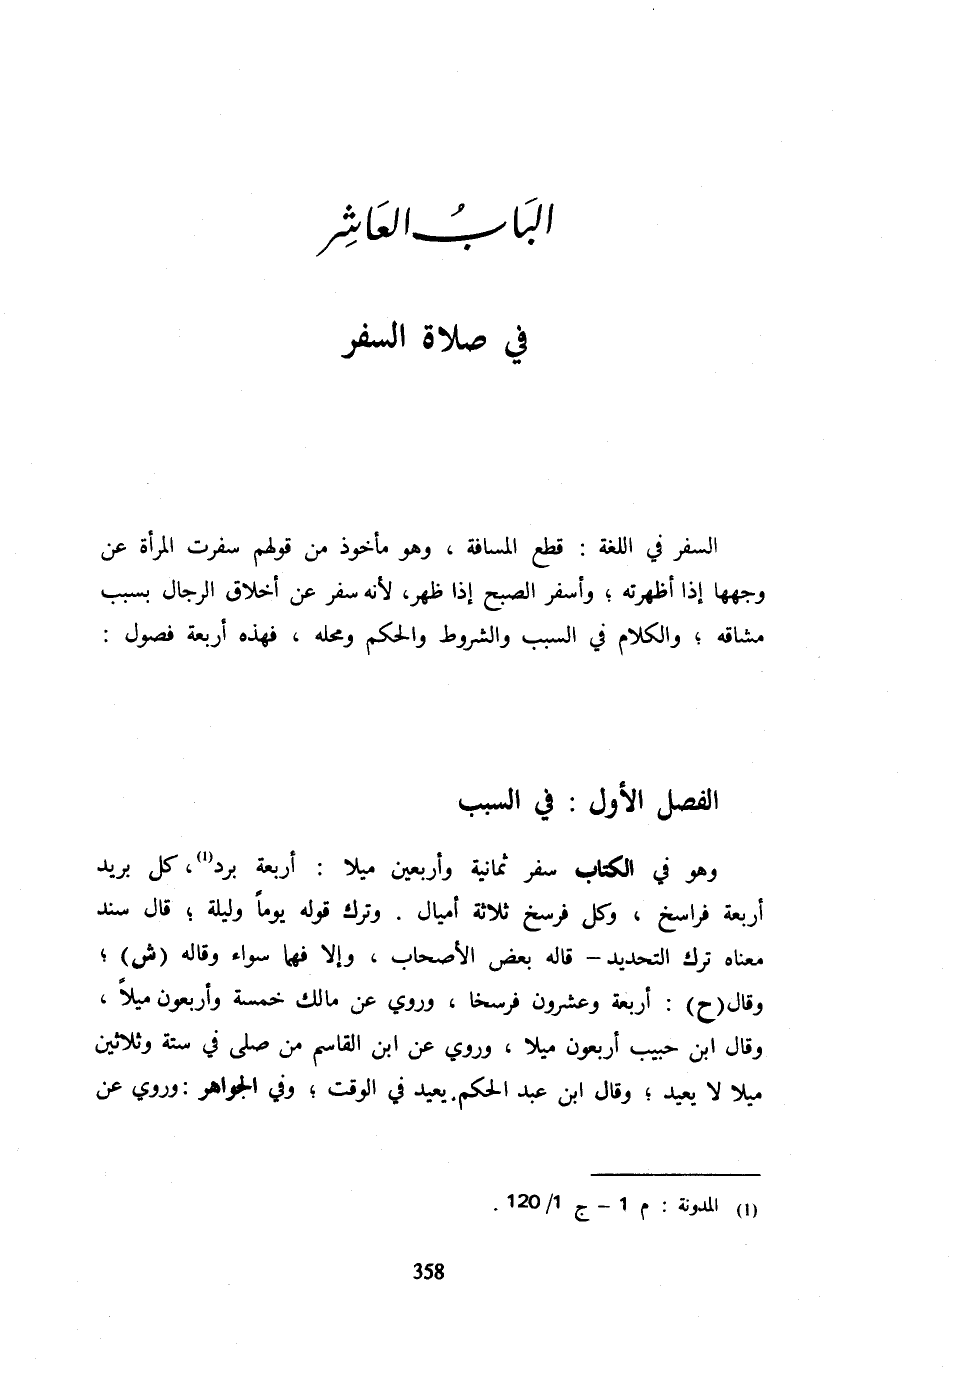 البَابُ العَاشِر
في صلاة السفر
السفر في اللغة : قطع المسافة ، وهو مأخوذ من قولهم سفرت المرأة عن
وجهها إذا أظهرته ؛ وأسفر الصبح إذا ظهر، لأنه سفر عن أخلاق الرجال بسبب
مشاقه ؛ والكلام في السبب والشروط والحكم ومحله ، فهذه أربعة فصول :
الفصل الأول : في السبب
وهو في الكتاب سفر ثمانية وأربعين ميلا : أربعة برد(1)، كل بريد
أربعة فراسخ ، وكل فرسخ ثلاثة أميال . وترك قوله يوماً وليلة ؛ قال سند
معناه ترك التحديد – قاله بعض الأصحاب ، وإلا فهما سواء وقاله (ش) ؛
وقال(ح) : أربعة وعشرون فرسخا ، وروي عن مالك خمسة وأربعون ميلاً ،
وقال ابن حبيب أربعون ميلا ، وروي عن ابن القاسم من صلى في ستة وثلاثين
ميلا لا يعيد ؛ وقال ابن عبد الحكم. يعيد في الوقت ؛ وفي الجواهر : وروي عن
(1) المدونة : م 1 – ج 120/1 .
358